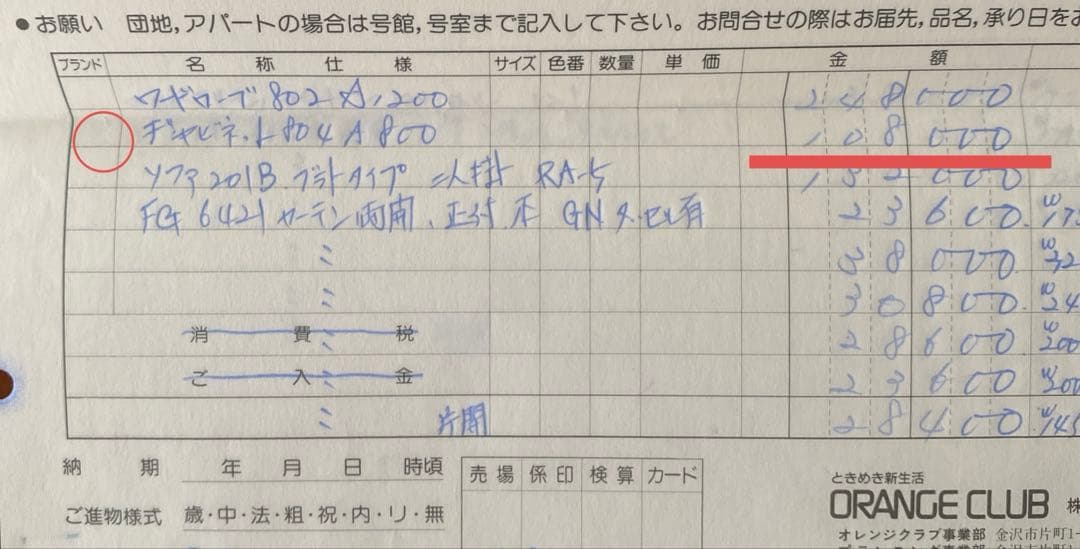 ●お願い 団地,アパートの場合は号館,号室まで記入して下さい。お問合せの際はお届先,品名,承り日をお
ブランド 名称仕様 サイズ 色番 数量 単価 金額
ワードローブ 802 A 1200 248000
キャビネット 804 A 800 108000
ソファ 201B フットタイプ 二人掛 132000
6421 カーテン両開 23600
〃 38000
〃 30800
消費税 〃 28600
ご入金 〃 23600
〃 片開 28400
納期 年 月 日 時頃
売場 係印 検算 カード
ご進物様式 歳・中・法・粗・祝・内・リ・無
ときめき新生活
ORANGE CLUB 株
オレンジクラブ事業部 金沢市片町1-